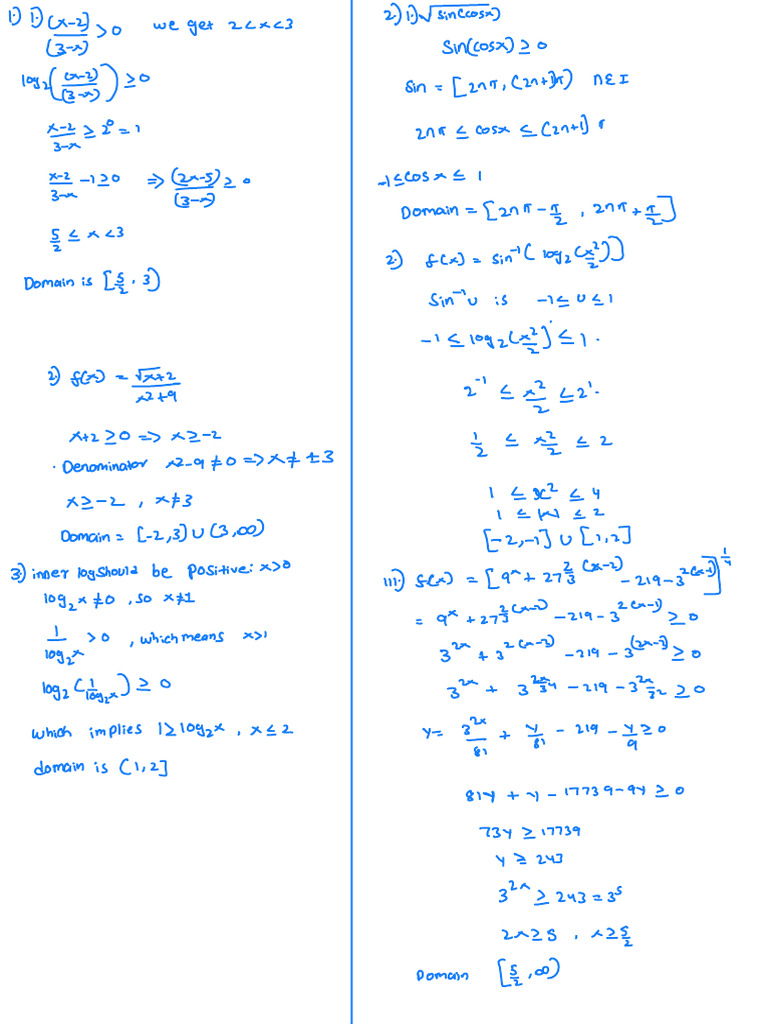 1. 1) (x-2)/(3-x) > 0 we get 2 < x < 3
log₂((x-2)/(3-x)) ≥ 0
x-2/3-x ≥ 2⁰ = 1
x-2/3-x -1 ≥ 0 => (2x-5)/(3-x) ≥ 0
5/2 ≤ x < 3
Domain is [5/2, 3)
2) f(x) = √x+2/x2+9
x+2 ≥ 0 => x ≥ -2
· Denominator x2-9 ≠ 0 => x ≠ ±3
x ≥ -2, x ≠ 3
Domain = [-2,3) ∪ (3,∞)
3) inner log should be positive: x>0
log₂x ≠ 0, so x ≠ 1
1/log₂x > 0, which means x>1
log₂(1/log₂x) ≥ 0
which implies 1 ≥ log₂x, x ≤ 2
domain is (1,2]
2) 1) √sin(cosx)
Sin(cosx) ≥ 0
Sin = [2nπ, (2n+1)π) n ∈ I
2nπ ≤ cosx ≤ (2n+1)π
-1 ≤ cosx ≤ 1
Domain = [2nπ-π/2, 2nπ+π/2]
2.) f(x) = sin⁻¹(log₂(x²/2))
Sin⁻¹u is -1 ≤ u ≤ 1
-1 ≤ log₂(x²/2) ≤ 1.
2⁻¹ ≤ x²/2 ≤ 2¹.
1/2 ≤ x²/2 ≤ 2
1 ≤ x² ≤ 4
1 ≤ |x| ≤ 2
[-2,-1] ∪ [1,2]
III.) f(x) = [9ˣ + 27^(2/3 (x-2)) - 219 - 3^(2(x-1))]^(1/4)
= 9ˣ + 27^(2/3 (x-2)) - 219 - 3^(2(x-1)) ≥ 0
3^(2x) + 3^(2(x-2)) - 219 - 3^(2x-2) ≥ 0
3^(2x) + 3^(2x)/3⁴ - 219 - 3^(2x)/3² ≥ 0
y = 3^(2x)/81 + y/81 - 219 - y/9 ≥ 0
81y + y - 17739 - 9y ≥ 0
73y ≥ 17739
y ≥ 243
3^(2x) ≥ 243 = 3⁵
2x ≥ 5, x ≥ 5/2
Domain [5/2, ∞)